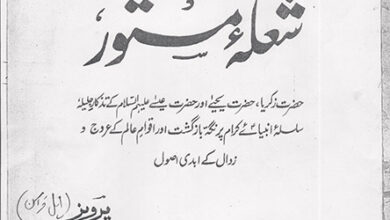 شعلۂ مستور
حضرت زکریا، حضرت یحییٰ اور حضرت عیسےٰ علیہم السلام کے تذکارِ جلیلہ
سلسلۂ انبیائے کرامؑ پر نگہِ بازگشت اور اقوامِ عالم کے عروج و
زوال کے ابدی اصول
پرویز (اہل قرآن)